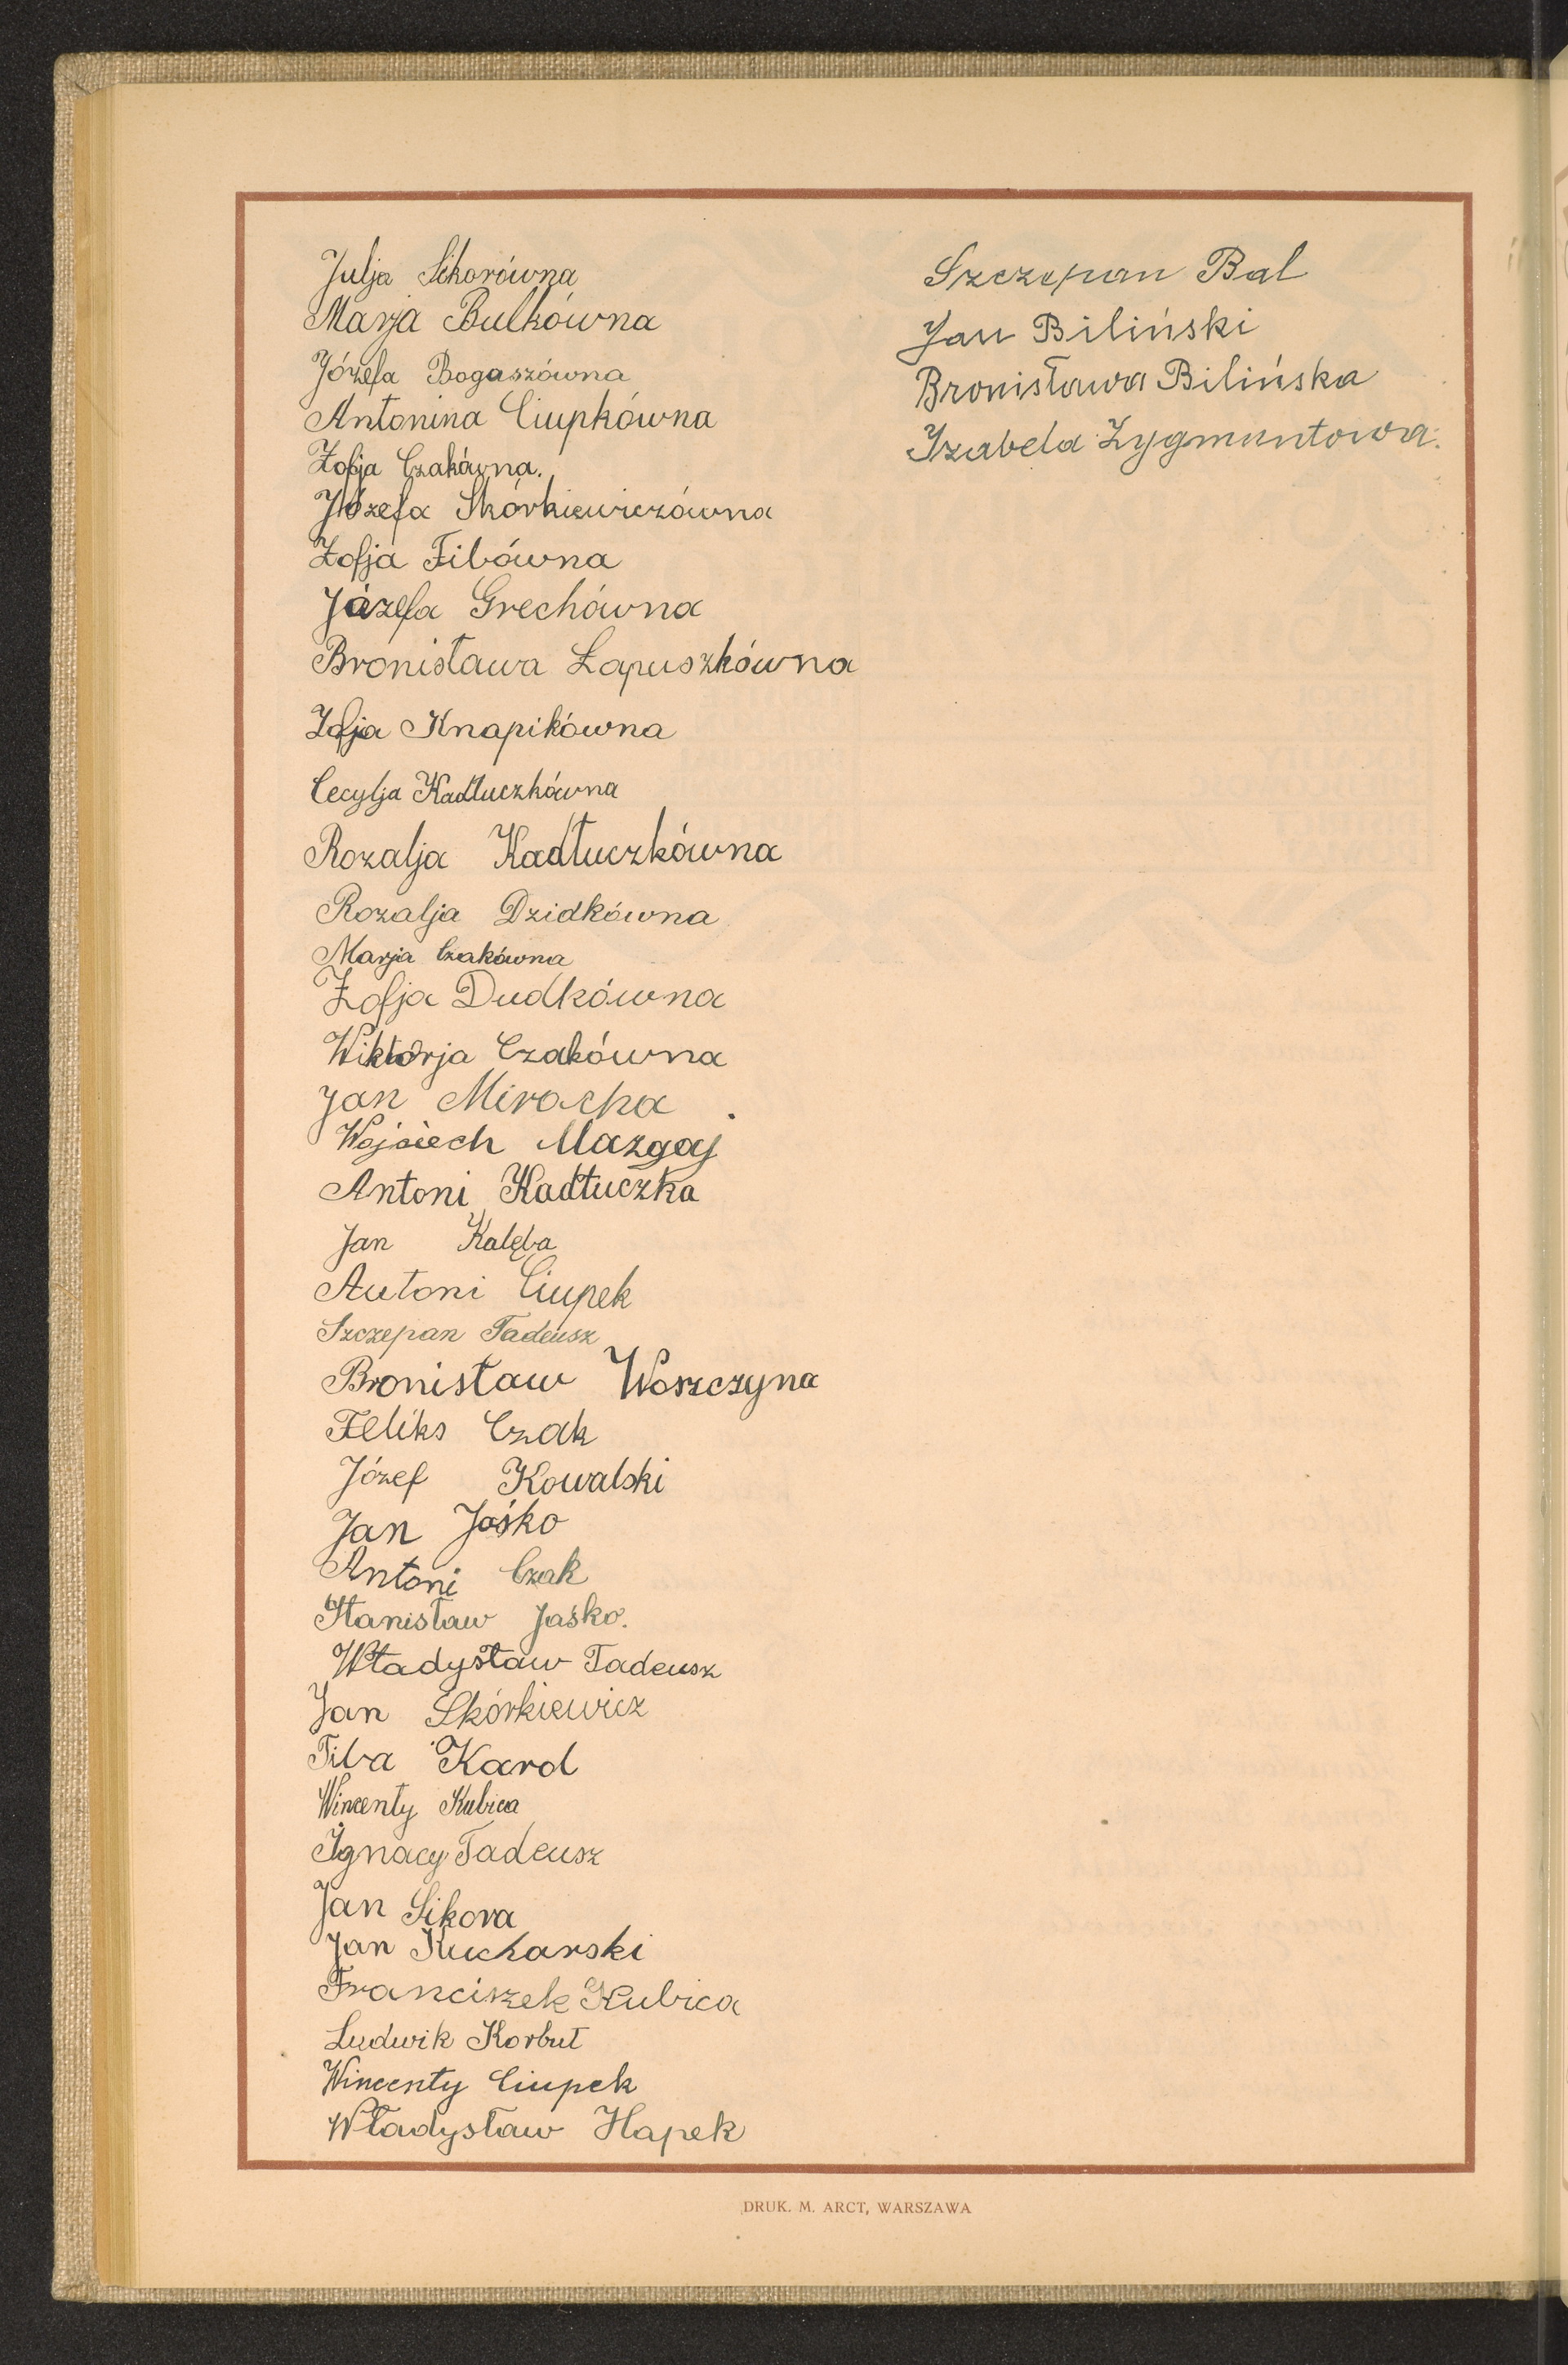 Julja Sikorówna
Marja Bulkówna
Józefa Bogaszówna
Antonina Ciupkówna
Zofja Czakówna.
Józefa Skórkiewiczówna
Zofja Fibówna
Józefa Grechówna
Bronisława Łapuszkówna
Zofja Knapikówna
Cecylja Kadłuczkówna
Rozalja Kadłuczkówna
Rozalja Dzidkówna
Marja Czakówna
Zofja Dudkówna
Wiktorja Czakówna
Jan Mirocha
Wojciech Mazgaj
Antoni Kadłuczka
Jan Kalęba
Antoni Ciupek
Szczepan Tadeusz
Bronisław Woszczyna
Feliks Czak
Józef Kowalski
Jan Jaśko
Antoni Czak
Stanisław Jaśko.
Władysław Tadeusz
Jan Skórkiewicz
Fiba Karol
Wincenty Kubica
Ignacy Tadeusz
Jan Sikora
Jan Kucharski
Franciszek Kubica
Ludwik Korbut
Wincenty Ciupek
Władysław Hapek
Szczepan Bal
Jan Biliński
Bronisława Bilińska
Izabela Zygmuntowa.
DRUK. M. ARCT, WARSZAWA